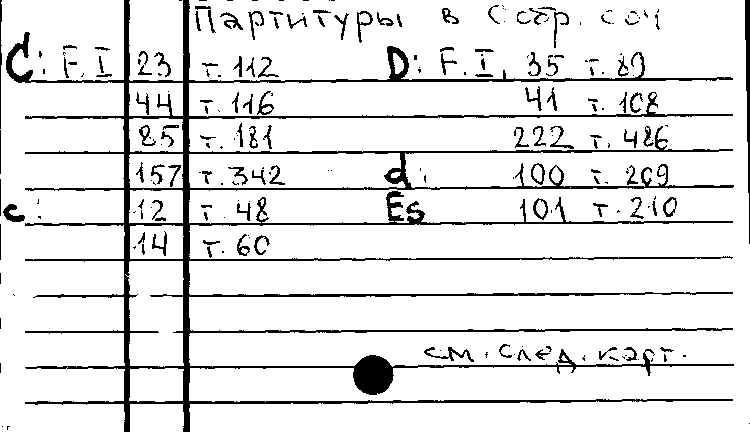 Партитуры в Собр. соч
C: F. I 23 т. 112 D: F. I, 35 т. 89
44 т. 116 41 т. 108
85 т. 181 222 т. 486
157 т. 342 d: 100 т. 209
c: 12 т. 48 Es 101 т. 210
14 т. 60
см. след. карт.